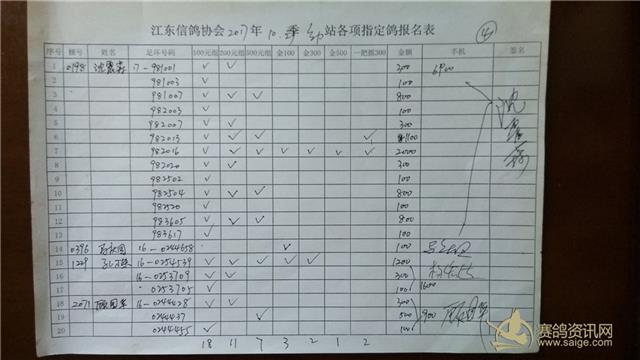 江东信鸽协会2017年10.季 站各项指定鸽报名表 ④
序号 棚号 姓名 足环号码 100元组 200元组 500元组 金100 金200 金500 一把抓300 金额 手机 签名
1 0198 17-981001 ✓ ✓ 300 6900
2 981003 ✓ 100
3 981007 ✓ ✓ ✓ 800
4 982003 ✓ 100
5 982007 ✓ ✓ 300
6 982013 ✓ ✓ ✓ 1100
7 982016 ✓ ✓ ✓ ✓ ✓ ✓ ✓ 2000
8 982020 ✓ ✓ 300
9 982502 ✓ 100
10 982504 ✓ ✓ ✓ 800
11 982520 ✓ 100
12 983605 ✓ ✓ ✓ 800
13 983617 ✓ 100
14 0396 16-0244658 ✓ 100
15 1229 16-0254539 ✓ ✓ ✓ ✓ ✓ 1200
16 16-0253709 ✓ ✓ 300
17 16-0253705 ✓ 100 1600
18 2071 16-0244428 ✓ ✓ 300
19 0244437 ✓ 500 900
20 0244455 ✓ 100
18 11 7 3 2 1 2
赛鸽资讯网
www.saige.com